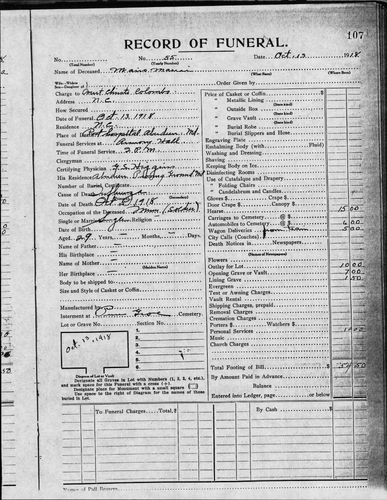 107
RECORD OF FUNERAL.
No. (Total Number) No. 55 (Yearly Number) Date Oct. 13 1918
Name of Deceased
(What Name) (Where Born)
Charge to
Address N.C.
How Secured
Date of Funeral Oct 13 1918
Residence N.C.
Place of Death Hospital Aberdeen Md.
Funeral Services at
Time of Funeral Service
Clergyman
Certifying Physician
His Residence Aberdeen Proving Ground Md
Number of Burial Certificate
Cause of Death
Date of Death Oct 1918
Occupation of the Deceased
Single or Married Single Religion
Date of Birth
Aged 29 Years, Months, Days
Name of Father
His Birthplace
Name of Mother
(Maiden Name)
Her Birthplace
Body to be shipped to
Size and Style of Casket or Coffin
Manufactured by
Interment at Cemetery
Lot or Grave No. Section No.
Oct. 13, 1918
1
2
3
4
5
6
Diagram of Lot or Vault
Designate all Graves in Lot with Numbers (1, 2, 3, 4, etc.),
and mark space for this Funeral with a cross (+).
Designate place for Monument with a small square □
Use space to right of Diagram for the names of those
buried in Lot.
Order Given by
Price of Casket or Coffin
" Metallic Lining
" Outside Box
" Grave Vault
" Burial Robe
" Burial Slippers and Hose
Engraving Plate
Embalming Body (with Fluid)
Washing and Dressing
Shaving
Keeping Body on Ice
Disinfecting Rooms
Use of Catafalque and Drapery
" Folding Chairs
" Candelabrum and Candles
Gloves $ Crape $
Door Crape $ Canopy $
Hearse 15 00
Carriages to Cemetery @ $
Automobiles to Cemetery @ $ 6 00
Wagon Deliveries 5 00
City Calls (Coaches)
Death Notices in Newspapers
(Names of Newspapers)
Flowers
Outlay for Lot 10 00
Opening Grave or Vault 7 00
Lining Grave 1 50
Evergreen
Tent or Awning Charges
Vault Rental
Shipping Charges, prepaid
Removal Charges
Cremation Charges
Porters $ Watchers $
Personal Services 10 00
Music
Church Charges
Total Footing of Bill $
By Amount Paid in Advance
Balance
Entered into Ledger, page or below.
To Funeral Charges Total $
By Cash $